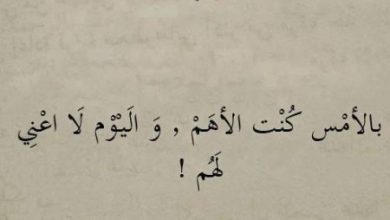 بالأمْس كُنْت الأهَمْ , وَ الَيْوْم لَا اعْنِي
لَهُم !